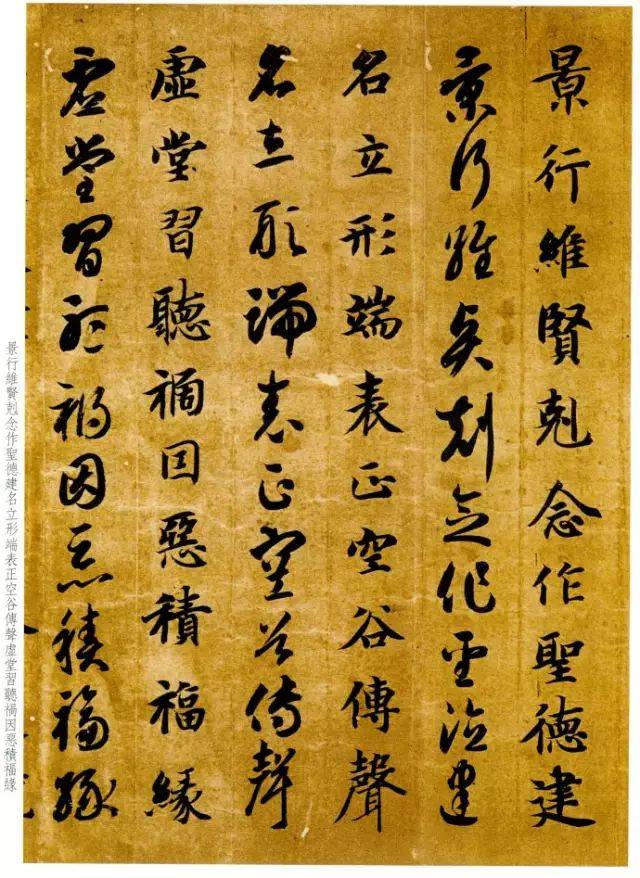 景行維賢剋念作聖德建
景行維賢剋念作聖德建
名立形端表正空谷傳聲
名立形端表正空谷傳聲
虛堂習聽禍因惡積福緣
虛堂習聽禍因惡積福緣
景行維賢剋念作聖德建名立形端表正空谷傳聲虛堂習聽禍因惡積福緣